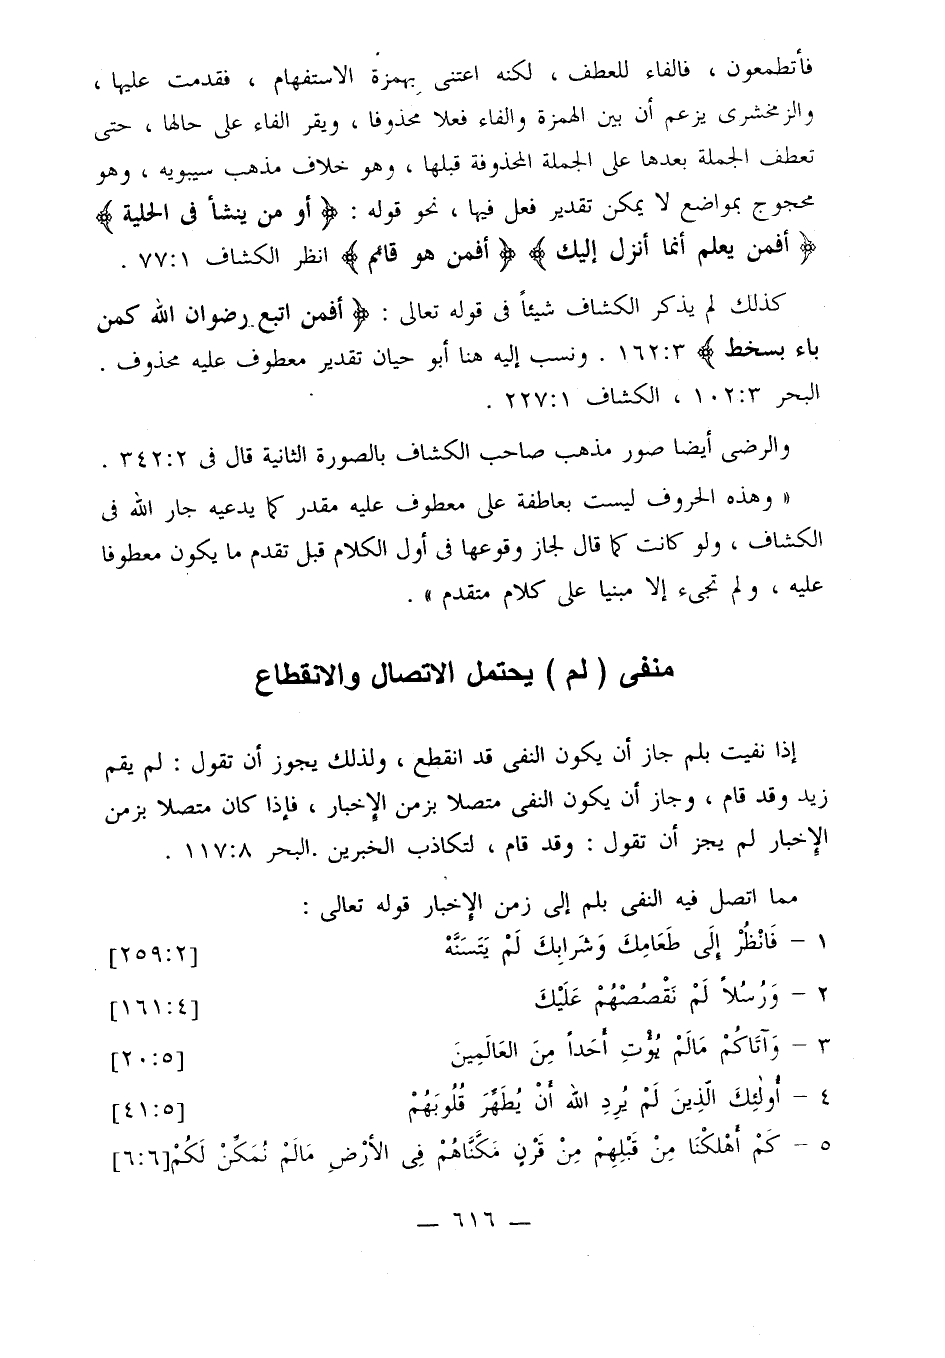 فأتطمعون ، فالفاء للعطف ، لكنه اعتنى بهمزة الاستفهام ، فقدمت عليها ،
والزمخشرى يزعم أن بين الهمزة والفاء فعلا محذوفا ، ويقر الفاء على حالها ، حتى
تعطف الجملة بعدها على الجملة المحذوفة قبلها ، وهو خلاف مذهب سيبويه ، وهو
محجوج بمواضع لا يمكن تقدير فعل فيها ، نحو قوله : ﴿ أو من ينشأ فى الحلية ﴾
﴿ أفمن يعلم أنما أنزل إليك ﴾ ﴿ أفمن هو قائم ﴾ انظر الكشاف ٧٧:١ .
كذلك لم يذكر الكشاف شيئاً فى قوله تعالى : ﴿ أفمن اتبع رضوان الله كمن
باء بسخط ﴾ ١٦٢:٣ . ونسب إليه هنا أبو حيان تقدير معطوف عليه محذوف .
البحر ١٠٢:٣ ، الكشاف ٢٢٧:١ .
والرضى أيضا صور مذهب صاحب الكشاف بالصورة الثانية قال فى ٣٤٢:٢ .
« وهذه الحروف ليست بعاطفة على معطوف عليه مقدر كما يدعيه جار الله فى
الكشاف ، ولو كانت كما قال لجاز وقوعها فى أول الكلام قبل تقدم ما يكون معطوفا
عليه ، ولم تجىء إلا مبنيا على كلام متقدم » .
منفى ( لم ) يحتمل الاتصال والانقطاع
إذا نفيت بلم جاز أن يكون النفى قد انقطع ، ولذلك يجوز أن تقول : لم يقم
زيد وقد قام ، وجاز أن يكون النفى متصلا بزمن الإخبار ، فإذا كان متصلا بزمن
الإخبار لم يجز أن تقول : وقد قام ، لتكاذب الخبرين .البحر ١١٧:٨ .
مما اتصل فيه النفى بلم إلى زمن الإخبار قوله تعالى :
١ – فَانْظُرْ إِلَى طَعَامِكَ وَشَرابِكَ لَمْ يَتَسَنَّهْ [٢٥٩:٢]
٢ – وَرُسُلاً لَمْ نَقْصُصْهُمْ عَلَيْكَ [١٦١:٤]
٣ – وَآتَاكُمْ مَالَمْ يُؤْتِ أَحَداً مِنَ العَالَمِينَ [٢٠:٥]
٤ – أُولٰئِكَ الَّذِينَ لَمْ يُرِدِ الله أَنْ يُطَهِّرَ قُلُوبَهُمْ [٤١:٥]
٥ – كَمْ أَهْلكْنَا مِنْ قَبْلِهِمْ مِنْ قَرْنٍ مَكَّنَّاهُمْ فِى الأَرْضِ مَالَمْ نُمَكِّنْ لَكُمْ[٦:٦]
— ٦١٦ —